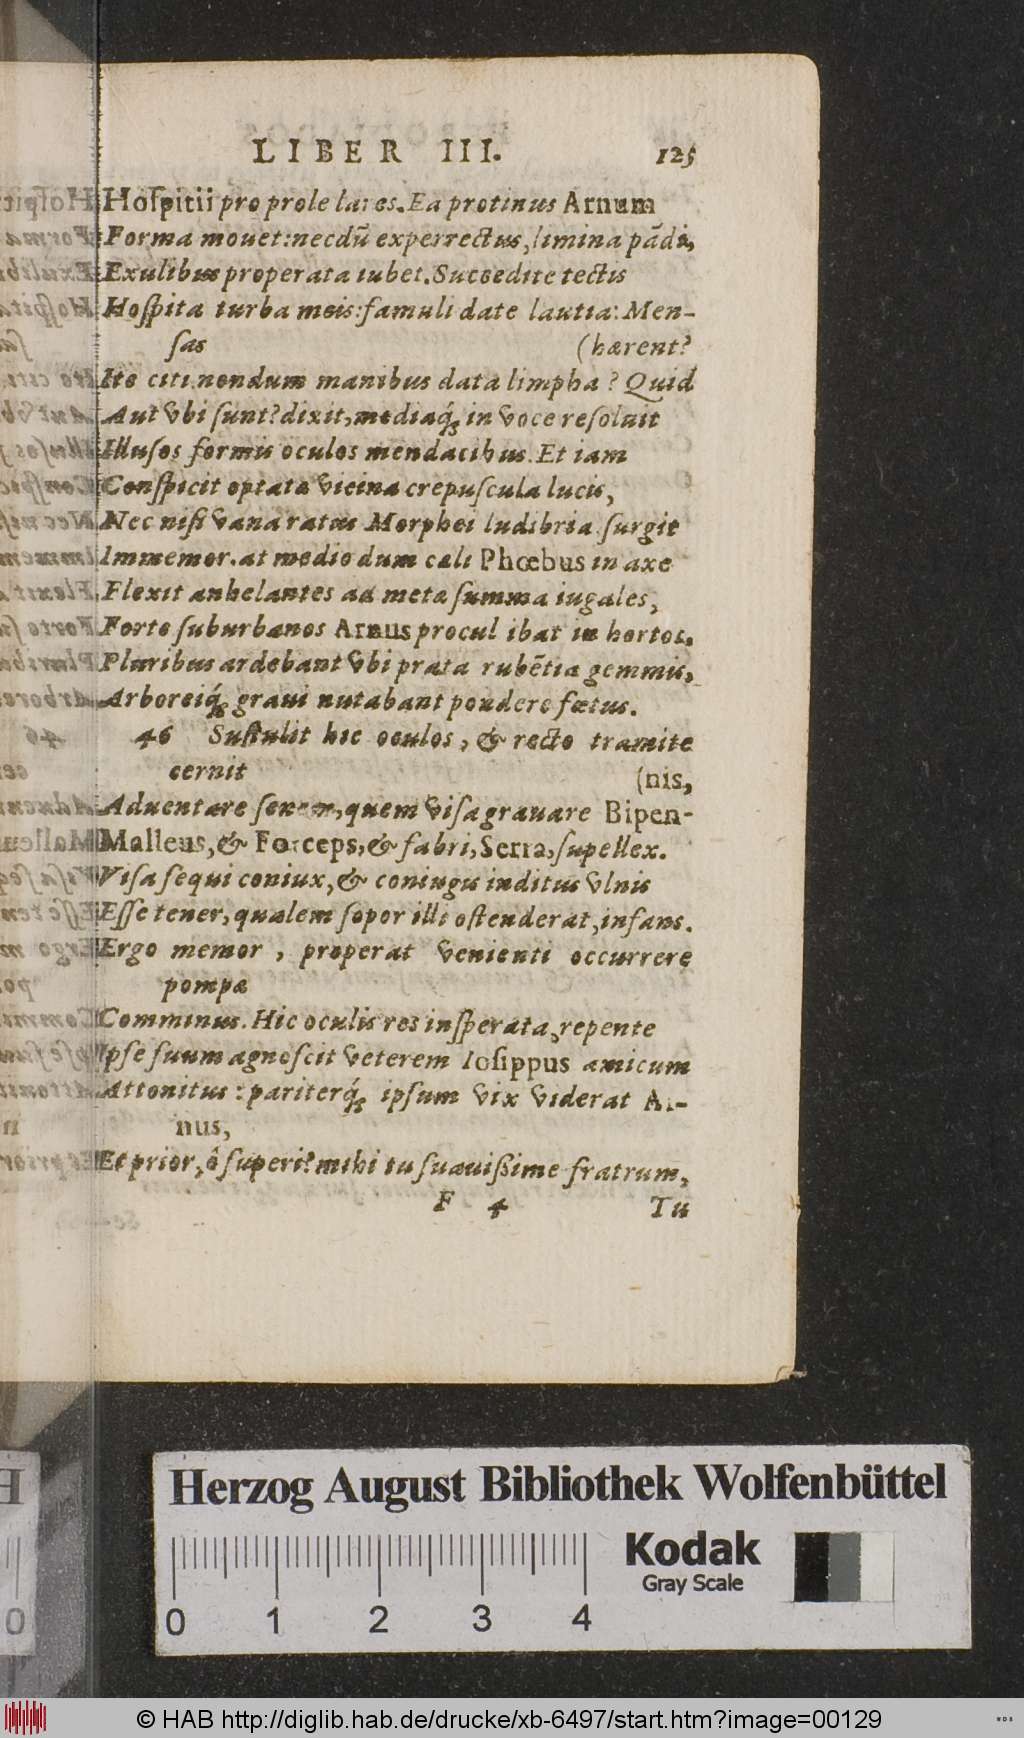 LIBER III. 125
Hoſpitii pro prole lares. Ea protinus Arnum
Forma mouet: necdū experrectus, limina pādi,
Exulibus properata iubet. Succedite tectis
Hoſpita turba meis: famuli date lautia: Men-
ſas (hærent?
Ite citi. nondum manibus data limpha? Quid
Aut vbi ſunt? dixit, mediaq́; in voce reſoluit
Illuſos formis oculos mendacibus. Et iam
Conſpicit optata vicina crepuſcula lucis,
Nec niſi vana ratus Morphei ludibria ſurgit
Immemor. at medio dum cæli Phœbus in axe
Flexit anhelantes ad meta ſumma iugales,
Forte ſuburbanos Arnus procul ibat in hortos.
Pluribus ardebant vbi prata rubētia gemmis,
Arboreiq́; graui nutabant pondere fœtus.
46 Suſtulit hic oculos, & recto tramite
cernit (nis,
Aduentare ſenem, quem viſa grauare Bipen-
Malleus, & Forceps, & fabri, Serra, ſupellex.
Viſa ſequi coniux, & coniugis inditus vlnis
Eſſe tener, qualem ſopor illi oſtenderat, infans.
Ergo memor, properat venienti occurrere
pompæ
Comminus. Hic oculis res inſperata, repente
Ipſe ſuum agnoſcit veterem Ioſippus amicum
Attonitus: pariterq́; ipſum vix viderat Ar-
nus,
Et prior, ô ſuperi! mihi tu ſuauiſsime fratrum,
F 4 Tu
Herzog August Bibliothek Wolfenbüttel
Kodak
Gray Scale
0 1 2 3 4
© HAB http://diglib.hab.de/drucke/xb-6497/start.htm?image=00129